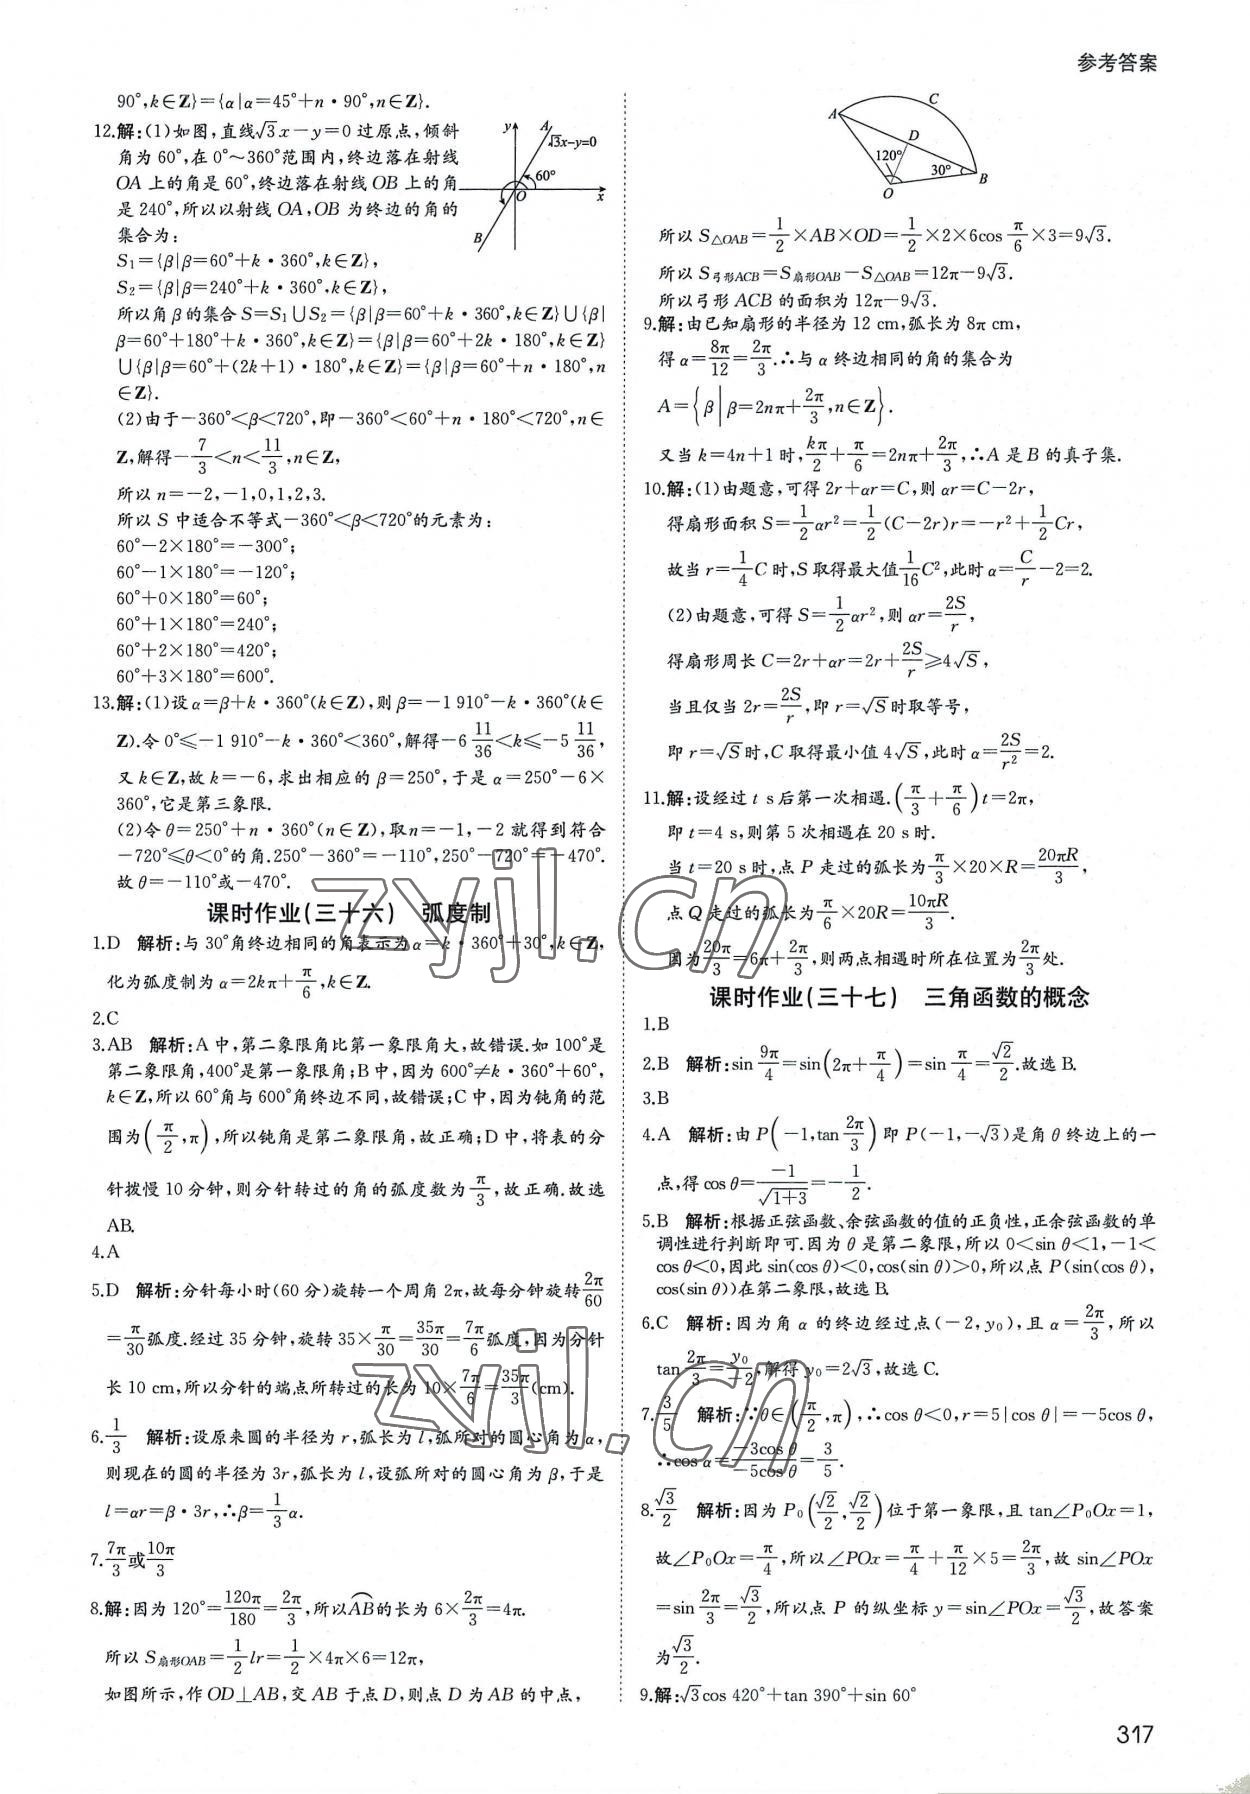 参考答案
90°,k∈Z}={α|α=45°+n·90°,n∈Z}.
12.解:(1)如图,直线√3x-y=0过原点,倾斜
角为60°,在0°~360°范围内,终边落在射线
OA上的角是60°,终边落在射线OB上的角
是240°,所以以射线OA,OB为终边的角的
集合为:
y
A
√3x-y=0
60°
O
x
B
S₁={β|β=60°+k·360°,k∈Z},
S₂={β|β=240°+k·360°,k∈Z},
所以角β的集合S=S₁∪S₂={β|β=60°+k·360°,k∈Z}∪{β|
β=60°+180°+k·360°,k∈Z}={β|β=60°+2k·180°,k∈Z}
∪{β|β=60°+(2k+1)·180°,k∈Z}={β|β=60°+n·180°,n
∈Z}.
(2)由于-360°<β<720°,即-360°<60°+n·180°<720°,n∈
Z,解得-7/3<n<11/3,n∈Z,
所以n=-2,-1,0,1,2,3.
所以S中适合不等式-360°<β<720°的元素为:
60°-2×180°=-300°;
60°-1×180°=-120°;
60°+0×180°=60°;
60°+1×180°=240°;
60°+2×180°=420°;
60°+3×180°=600°.
13.解:(1)设α=β+k·360°(k∈Z),则β=-1 910°-k·360°(k∈
Z).令0°≤-1 910°-k·360°<360°,解得-6 11/36<k≤-5 11/36,
又k∈Z,故k=-6,求出相应的β=250°,于是α=250°-6×
360°,它是第三象限.
(2)令θ=250°+n·360°(n∈Z),取n=-1,-2就得到符合
-720°≤θ<0°的角.250°-360°=-110°,250°-720°=-470°.
故θ=-110°或-470°.
课时作业(三十六) 弧度制
1.D 解析:与30°角终边相同的角表示为α=k·360°+30°,k∈Z,
化为弧度制为α=2kπ+π/6,k∈Z.
2.C
3.AB 解析:A中,第二象限角比第一象限角大,故错误.如100°是
第二象限角,400°是第一象限角;B中,因为600°≠k·360°+60°,
k∈Z,所以60°角与600°角终边不同,故错误;C中,因为钝角的范
围为(π/2,π),所以钝角是第二象限角,故正确;D中,将表的分
针拨慢10分钟,则分针转过的角的弧度数为π/3,故正确.故选
AB.
4.A
5.D 解析:分针每小时(60分)旋转一个周角2π,故每分钟旋转2π/60
=π/30弧度.经过35分钟,旋转35×π/30=35π/30=7π/6弧度,因为分针
长10 cm,所以分针的端点所转过的长为10×7π/6=35π/3(cm).
6.1/3 解析:设原来圆的半径为r,弧长为l,弧所对的圆心角为α,
则现在的圆的半径为3r,弧长为l,设弧所对的圆心角为β,于是
l=αr=β·3r,∴β=1/3α.
7.7π/3或10π/3
8.解:因为120°=120π/180=2π/3,所以⌒AB的长为6×2π/3=4π.
所以S扇形OAB=1/2lr=1/2×4π×6=12π,
如图所示,作OD⊥AB,交AB于点D,则点D为AB的中点,
A
C
D
120°
30°
B
O
所以S△OAB=1/2×AB×OD=1/2×2×6cos π/6×3=9√3.
所以S弓形ACB=S扇形OAB-S△OAB=12π-9√3.
所以弓形ACB的面积为12π-9√3.
9.解:由已知扇形的半径为12 cm,弧长为8π cm,
得α=8π/12=2π/3.∴与α终边相同的角的集合为
A={β|β=2nπ+2π/3,n∈Z}.
又当k=4n+1时,kπ/2+π/6=2nπ+2π/3,∴A是B的真子集.
10.解:(1)由题意,可得2r+αr=C,则αr=C-2r,
得扇形面积S=1/2αr²=1/2(C-2r)r=-r²+1/2Cr,
故当r=1/4C时,S取得最大值1/16C²,此时α=C/r-2=2.
(2)由题意,可得S=1/2αr²,则αr=2S/r,
得扇形周长C=2r+αr=2r+2S/r≥4√S,
当且仅当2r=2S/r,即r=√S时取等号,
即r=√S时,C取得最小值4√S,此时α=2S/r²=2.
11.解:设经过t s后第一次相遇.(π/3+π/6)t=2π,
即t=4 s,则第5次相遇在20 s时.
当t=20 s时,点P走过的弧长为π/3×20×R=20πR/3,
点Q走过的弧长为π/6×20R=10πR/3.
因为20π/3=6π+2π/3,则两点相遇时所在位置为2π/3处.
课时作业(三十七) 三角函数的概念
1.B
2.B 解析:sin 9π/4=sin(2π+π/4)=sin π/4=√2/2.故选B.
3.B
4.A 解析:由P(-1,tan 2π/3)即P(-1,-√3)是角θ终边上的一
点,得cos θ=-1/√(1+3)=-1/2.
5.B 解析:根据正弦函数、余弦函数的值的正负性,正余弦函数的单
调性进行判断即可.因为θ是第二象限,所以0<sin θ<1,-1<
cos θ<0,因此sin(cos θ)<0,cos(sin θ)>0,所以点P(sin(cos θ),
cos(sin θ))在第二象限,故选B.
6.C 解析:因为角α的终边经过点(-2,y₀),且α=2π/3,所以
tan 2π/3=y₀/-2,解得y₀=2√3,故选C.
7.3/5 解析:∵θ∈(π/2,π),∴cos θ<0,r=5|cos θ|=-5cos θ,
∴cos α=-3cos θ/-5cos θ=3/5.
8.√3/2 解析:因为P₀(√2/2,√2/2)位于第一象限,且tan∠P₀Ox=1,
故∠P₀Ox=π/4,所以∠POx=π/4+π/12×5=2π/3,故sin∠POx
=sin 2π/3=√3/2,所以点P的纵坐标y=sin∠POx=√3/2,故答案
为√3/2.
9.解:√3cos 420°+tan 390°+sin 60°
zyjl.cn
zyjl.cn
317